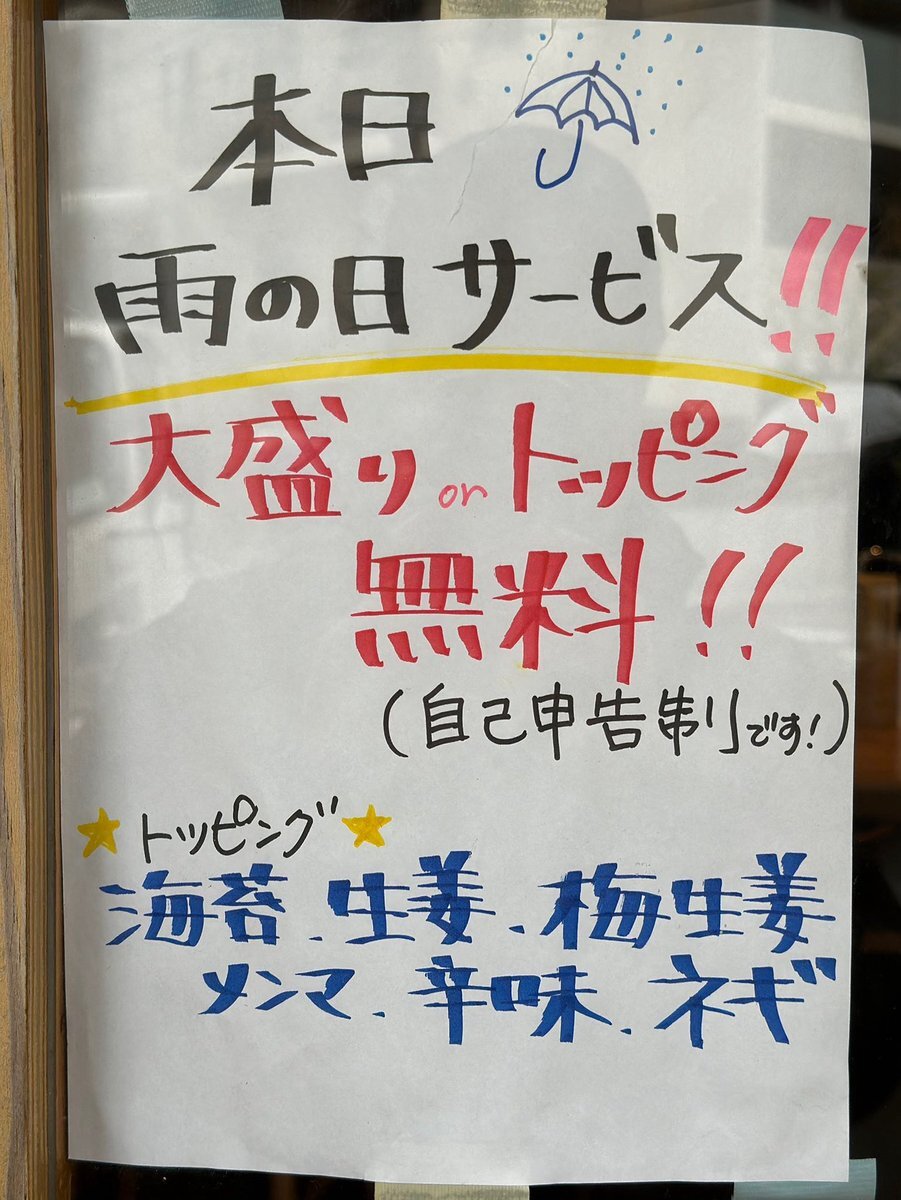 本日
雨の日サービス!!
大盛りorトッピング
無料!!
(自己申告制です!)
トッピング
海苔、生姜、梅生姜
メンマ、辛味、ネギ